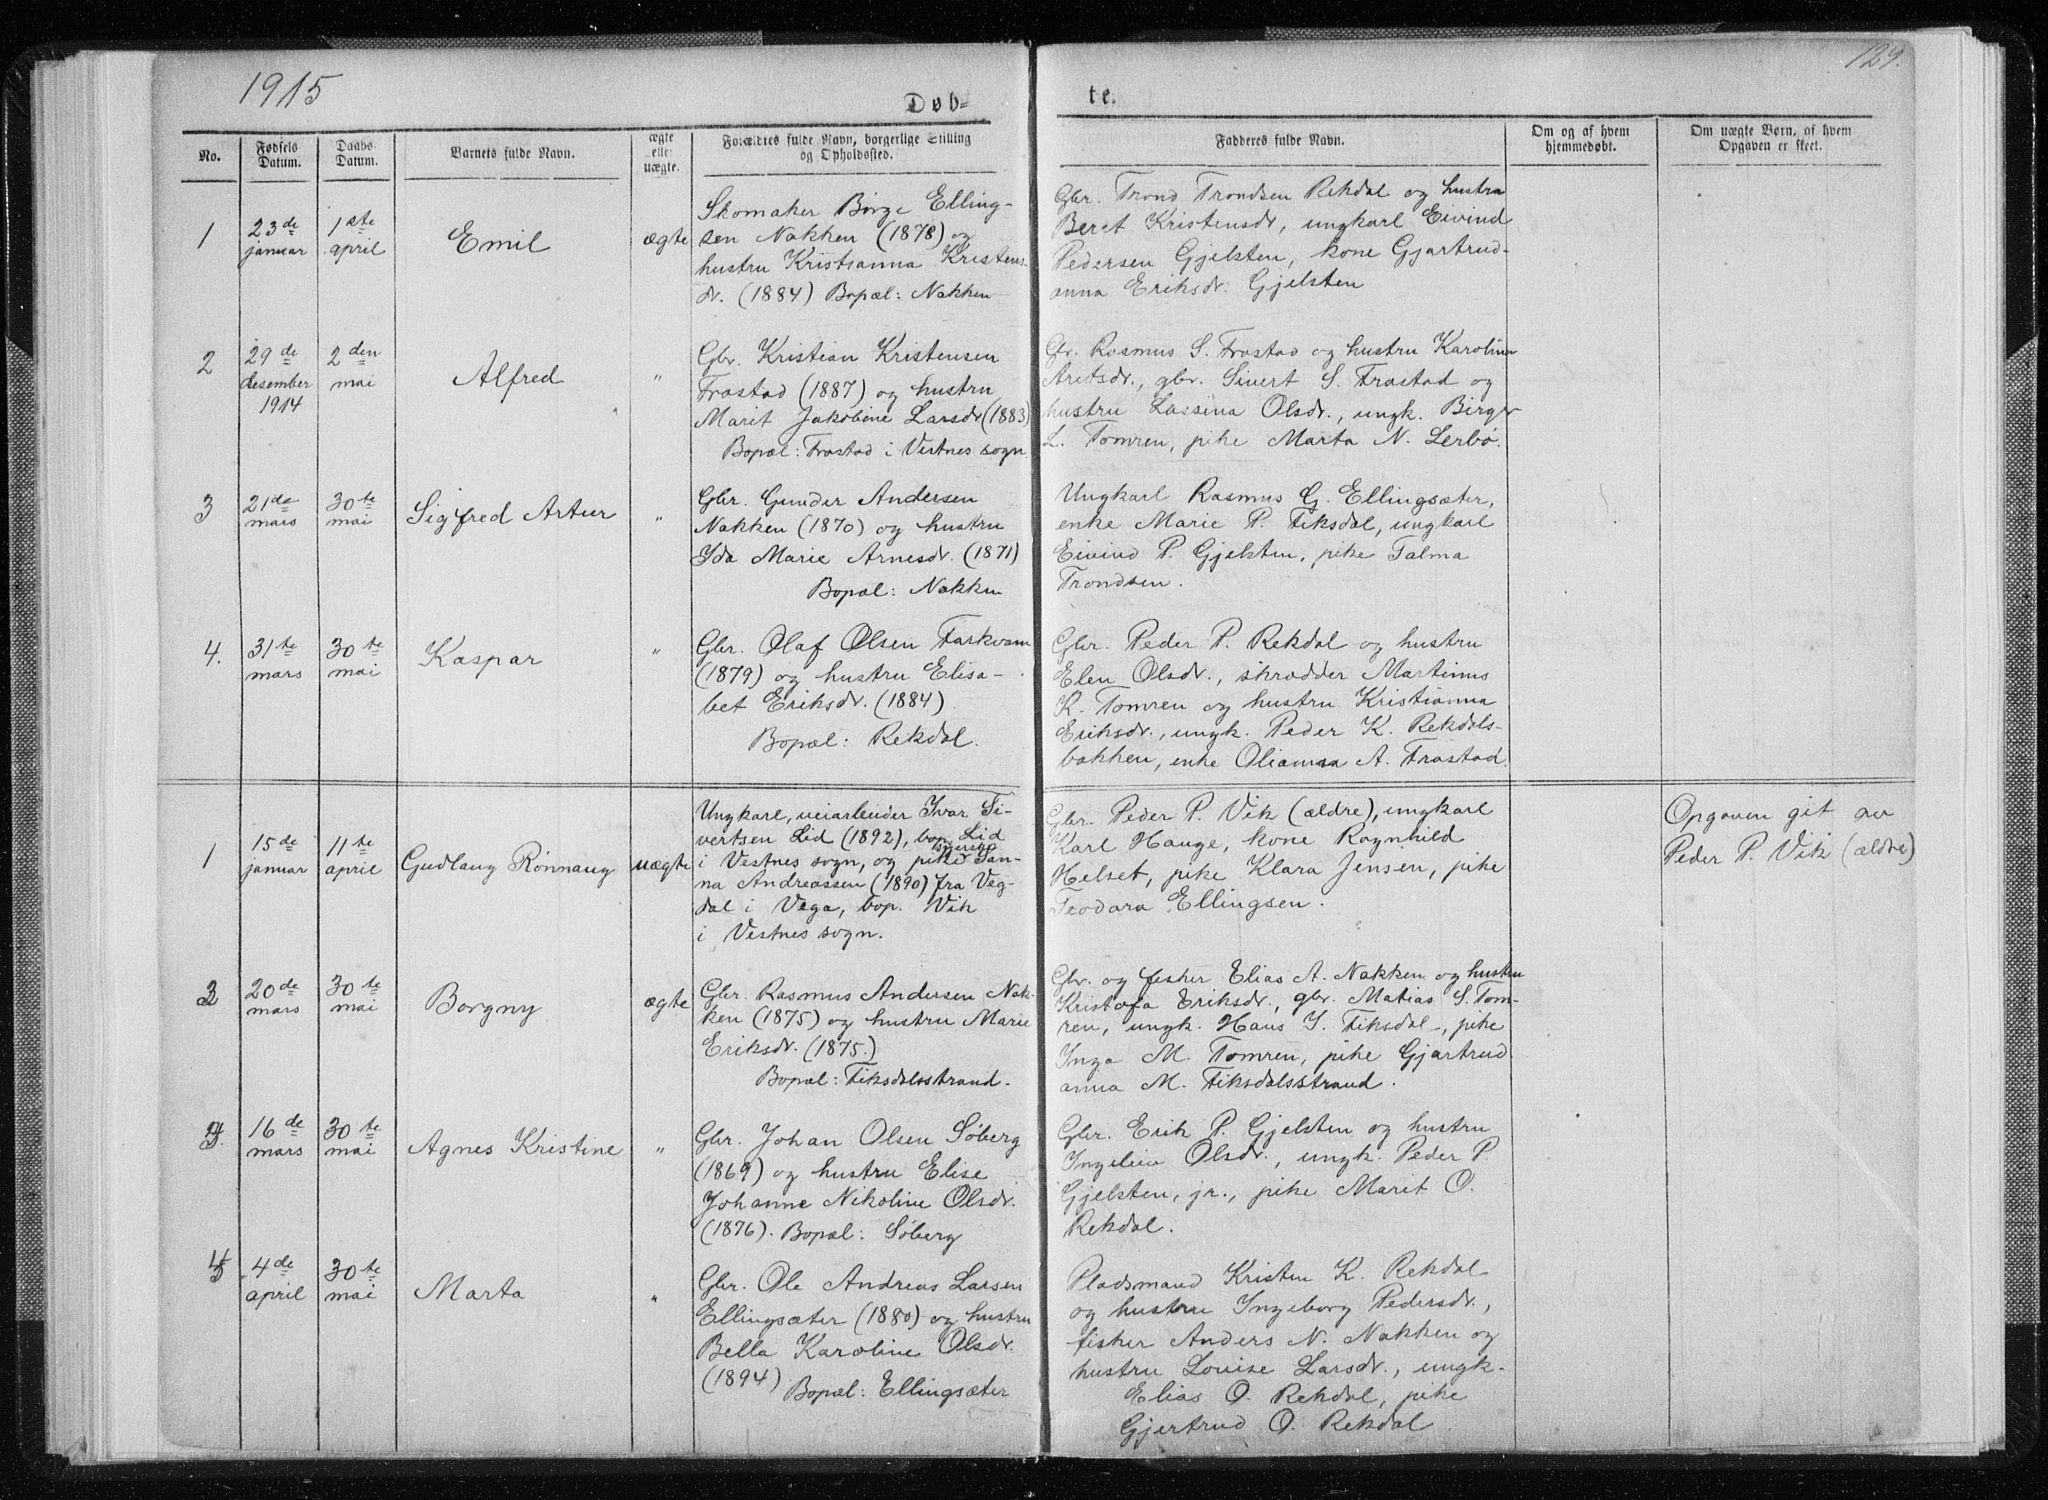 1915
129.
Døb-
te.
No.
Fødsels Datum.
Daabs Datum.
Barnets fulde Navn.
ægte eller uægte.
Forældres fulde Navn, borgerlige Stilling og Opholdssted.
Fadderes fulde Navn.
Om og af hvem hjemmedøbt.
Om uægte Børn, af hvem Opgaven er skeet.
1
23de januar
1ste april
Emil
ægte
Skomaker Børge Elling-
sen Nakken (1878) og
hustru Kristianna Kristens-
dr. (1884) Bopæl: Nakken
Gbr. Trond Trondsen Rekdal og hustru
Beret Kristensdr, ungkarl Eivind
Pedersen Gjelsten, kone Gjartrud-
anna Eriksdr. Gjelsten
2
29de desember 1914
2den mai
Alfred
"
Gbr. Kristian Kristensen
Frostad (1887) og hustru
Marit Jakobine Larsdr (1883)
Bopæl: Frostad i Vestnes sogn
Gbr. Rasmus S. Frostad og hustru Karolina
Aretsdr., gbr. Sivert S. Frostad og
hustru Lassina Olsdr., ungk. Birger
L. Tomren, pike Marta N. Lerbø.
3
21de mars
30te mai
Sigfred Artur
"
Gbr. Gunder Andersen
Nakken (1870) og hustru
Ida Marie Arnesdr. (1871)
Bopæl: Nakken
Ungkarl Rasmus G. Ellingsæter,
enke Marie P. Fiksdal, ungkarl
Eivind P. Gjelsten, pike Talma
Trondsen.
4.
31te mars
30te mai
Kaspar
"
Gbr. Olaf Olsen Farkvam
(1879) og hustru Elisa-
bet Eriksdr. (1884)
Bopæl: Rekdal.
Gbr. Peder P. Rekdal og hustru
Elen Olsdr., skrædder Martinus
K. Tomren og hustru Kristianna
Eriksdr., ungk. Peder K. Rekdals-
bakken, enke Olianna A. Frostad.
1
15de januar
11te april
Gudlaug Rønnaug
uægte
Ungkarl, veiarbeider Ivar Si-
vertsen Lid (1892), bop. Lid
i Vestnes sogn, og pike Jan-
na Andreassen (1890) fra Veg-
dal i Vega, bop. Vik
i Vestnes sogn.
Gbr. Peder P. Vik (ældre), ungkarl
Karl Hauge, kone Ragnhild
Helset, pike Klara Jensen, pike
Teodora Ellingsen.
Opgaven git av
Peder P. Vik (ældre)
2
20de mars
30te mai
Borgny
ægte
Gbr. Rasmus Andersen Nak-
ken (1875) og hustru Marie
Eriksdr. (1875.)
Bopæl: Fiksdalsstrand.
Gbr. og fisker Elias A. Nakken og hustru
Kristofa Eriksdr., gbr. Matias S. Tom-
ren, ungk. Hans I. Fiksdal, pike
Inga M. Tomren, pike Gjartrud
anna M. Fiksdalsstrand.
3
16de mars
30te mai
Agnes Kristine
"
Gbr. Johan Olsen Søberg
(1869) og hustru Elise
Johanne Nikoline Olsdr.
(1876). Bopæl: Søberg
Gbr. Erik P. Gjelsten og hustru
Ingeleiv Olsdr., ungk. Peder P.
Gjelsten, jr., pike Marit O.
Rekdal.
4
4de april
30te mai
Marta
"
Gbr. Ole Andreas Larsen
Ellingsæter (1880) og hustru
Bella Karoline Olsdr.
(1894) Bopæl: Ellingsæter
Pladsmand Kristen K. Rekdal
og hustru Ingeborg Pedersdr.,
fisker Anders N. Nakken og
hustru Louise Larsdr., ungk.
Elias O. Rekdal, pike
Gjertrud O. Rekdal